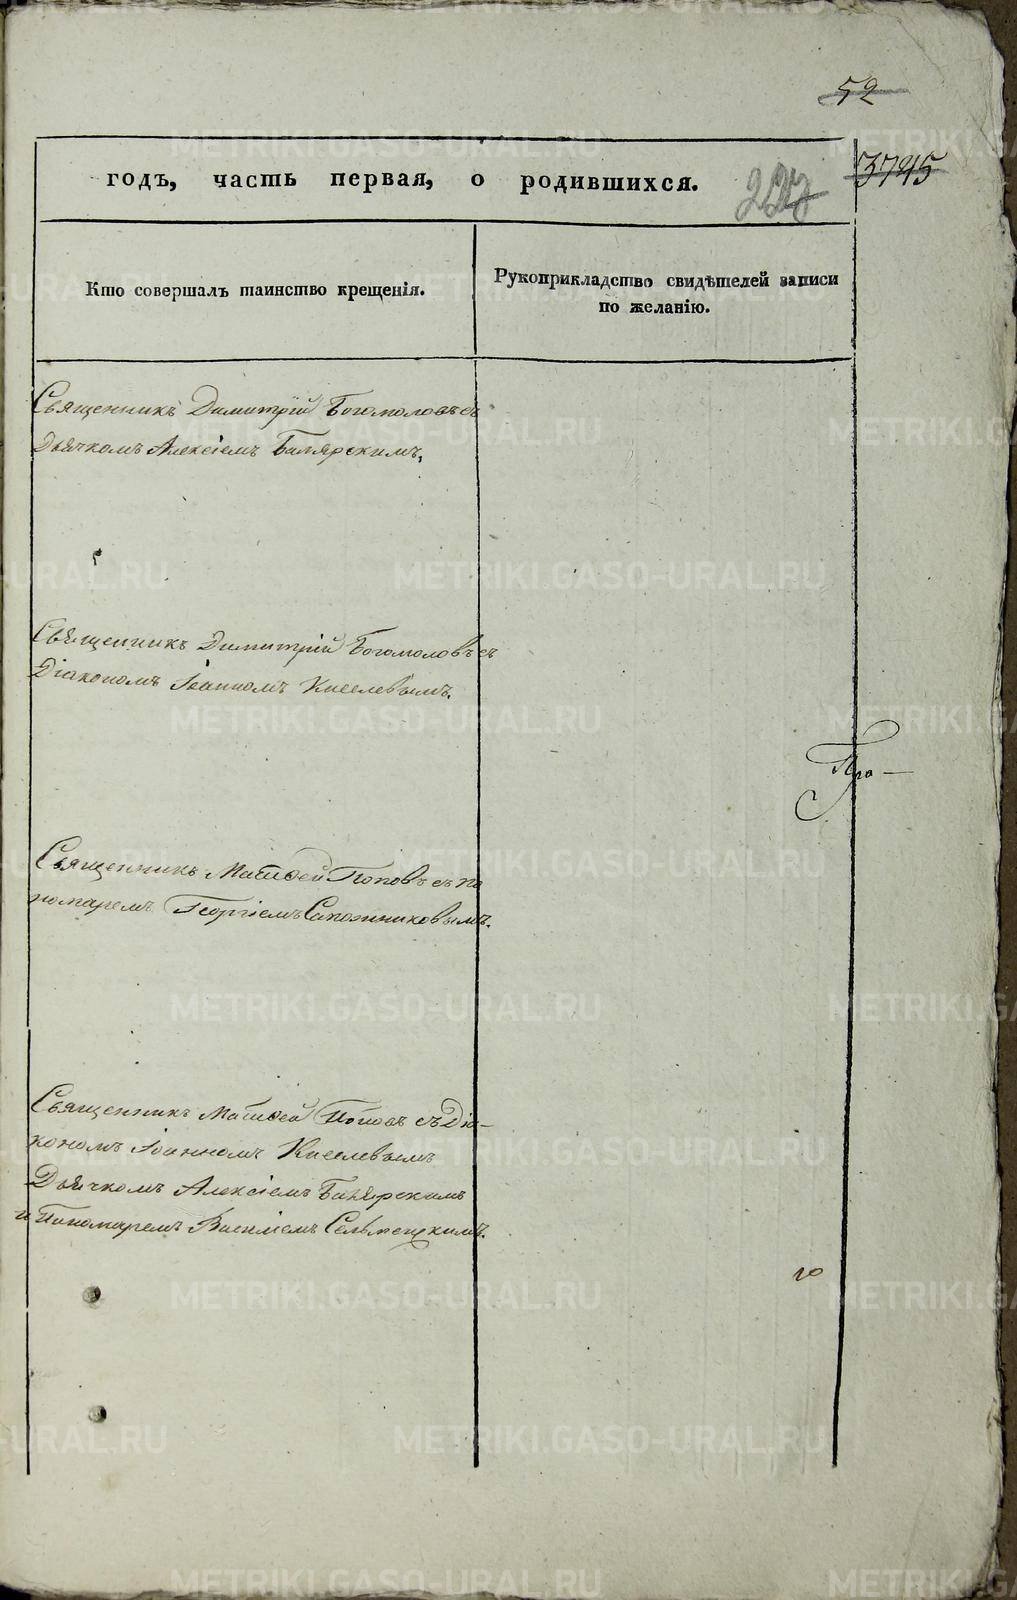 52
3795
годъ, часть первая, о родившихся.
Кто совершалъ таинство крещенія.
Рукоприкладство свидѣтелей записи
по желанію.
Священникъ Димитрій Богомоловъ съ
Дьячкомъ Алексіемъ
Священникъ Димитрій Богомоловъ съ
Діакономъ Іоанномъ Киселевымъ.
Священникъ Матѳей Поповъ съ по
номаремъ Георгіемъ Сапожниковымъ.
Про-
Священникъ Матѳей Поповъ съ Діа-
кономъ Іоанномъ Киселевымъ
Дьячкомъ Алексіемъ
и Пономаремъ Василіемъ
METRIKI.GASO-URAL.RU